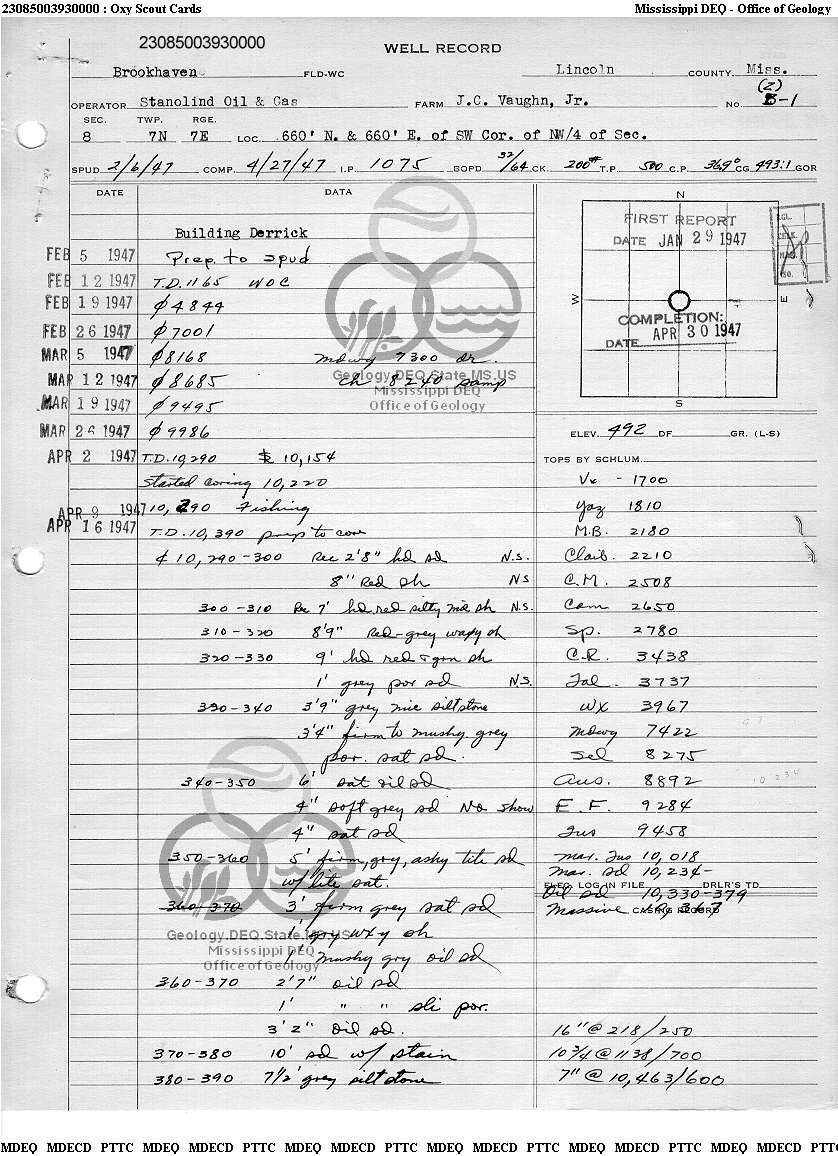 23085003930000 : Oxy Scout Cards Mississippi DEQ - Office of Geology
23085003930000
WELL RECORD
Brookhaven FLD-WC Lincoln COUNTY, Miss.
(Z)
OPERATOR Stanolind Oil & Gas FARM J.C. Vaughn, Jr. NO. B-1
SEC. TWP. RGE.
8 7N 7E LOC. 660' N. & 660' E. of SW Cor. of NW/4 of Sec.
SPUD 2/6/47 COMP. 4/27/47 I.P. 1075 BOPD 32/64 CK. 200# T.P. 500 C.P. 36.9° CG 493:1 GOR
DATE DATA
Building Derrick
FEB 5 1947 Prep. to spud
FEB 12 1947 T.D. 1165 WOC
FEB 19 1947 ϕ 4844
FEB 26 1947 ϕ 7001
MAR 5 1947 ϕ 8168 mdwy 7300 dr.
MAR 12 1947 ϕ 8685 ch 8240 samp
MAR 19 1947 ϕ 9495
MAR 26 1947 ϕ 9986
APR 2 1947 T.D. 10,290 10,154
Started coring 10,220
APR 9 1947 10,290 Fishing
APR 16 1947 T.D. 10,390 prep to core
₵ 10,290-300 Rec 2'8" hd sd N.S.
8" Red sh NS
300-310 Rec 7' hd. red silty mic sh N.S.
310-320 8'9" Red-grey waxy sh
320-330 9' hd red & grn sh
1' grey por sd N.S.
330-340 3'9" grey mic siltstone
3'4" firm to mushy grey
por. sat sd.
340-350 6' sat oil sd
4" soft grey sd No show
4" sat sd
350-360 5' firm, gry, ashy tite sd
w/ lite sat.
360-370 3' firm grey sat sd
1' gry wxy sh
1' mushy gry oil sd
360-370 2'7" oil sd
1' " " sli por.
3'2" oil sd.
370-380 10' sd w/ stain
380-390 7 1/2' grey siltstone
N
FIRST REPORT
DATE JAN 29 1947
W E
COMPLETION:
APR 30 1947
DATE
S
ELEV. 492 DF GR. (L-S)
TOPS BY SCHLUM.
Vx - 1700
Yaz 1810
M.B. 2180
Claib. 2210
C.M. 2508
Cam 2650
Sp. 2780
C.R. 3438
Tal. 3737
WX 3967
mdwy 7422
Sel 8275
Aus. 8892
E.F. 9284
Tus 9458
Mar. Tus 10,018
Mar. sd 10,234-
ELEC. LOG IN FILE DRLR'S TD
Oil sd 10,330-379
CASING RECORD
Massive 10,367
16" @ 218/250
10 3/4 @ 1138/700
7" @ 10,463/600
Geology.DEQ.State.MS.US
Mississippi DEQ
Office of Geology
Geology.DEQ.State.MS.US
Mississippi DEQ
Office of Geology
MDEQ MDECD PTTC MDEQ MDECD PTTC MDEQ MDECD PTTC MDEQ MDECD PTTC MDEQ MDECD PTTC MDEQ MDECD PTTC